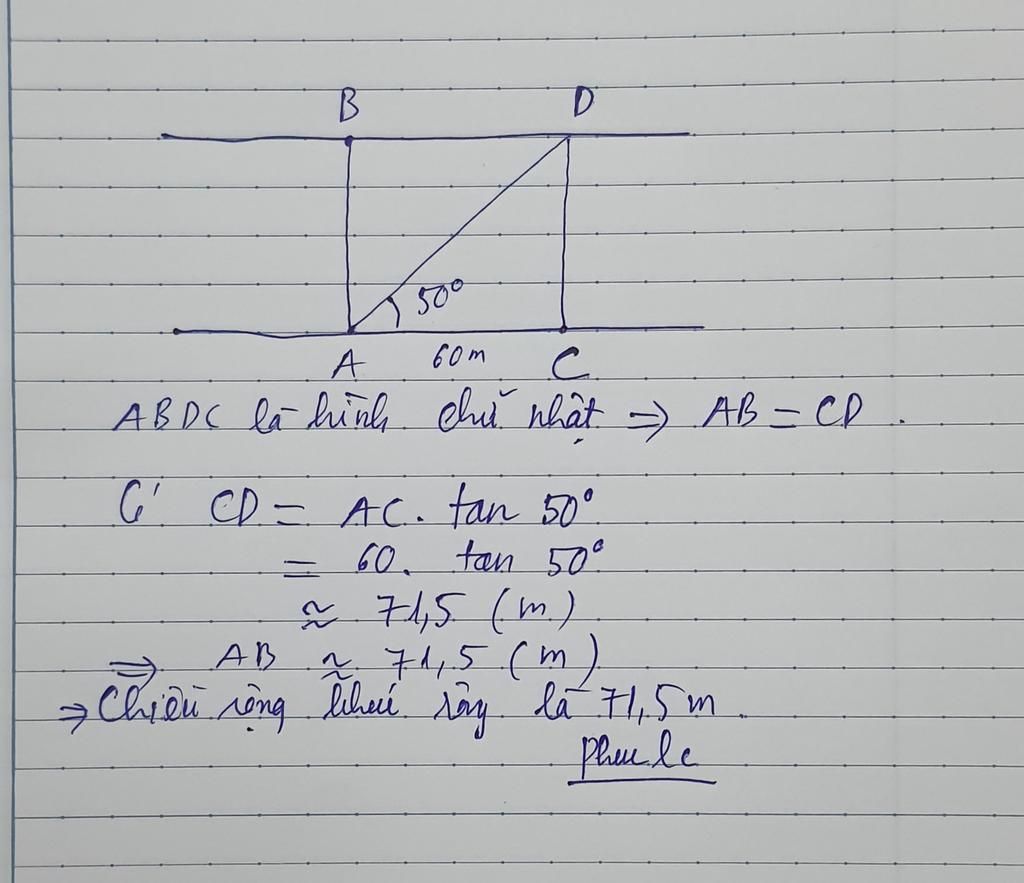 B D
50°
A 60m C
ABDC là hình chữ nhật ⇒ AB = CD.
Có CD = AC. tan 50°
= 60. tan 50°
≈ 71,5 (m)
⇒ AB ≈ 71,5 (m)
⇒ Chiều rộng khúc sông là 71,5m.
phule